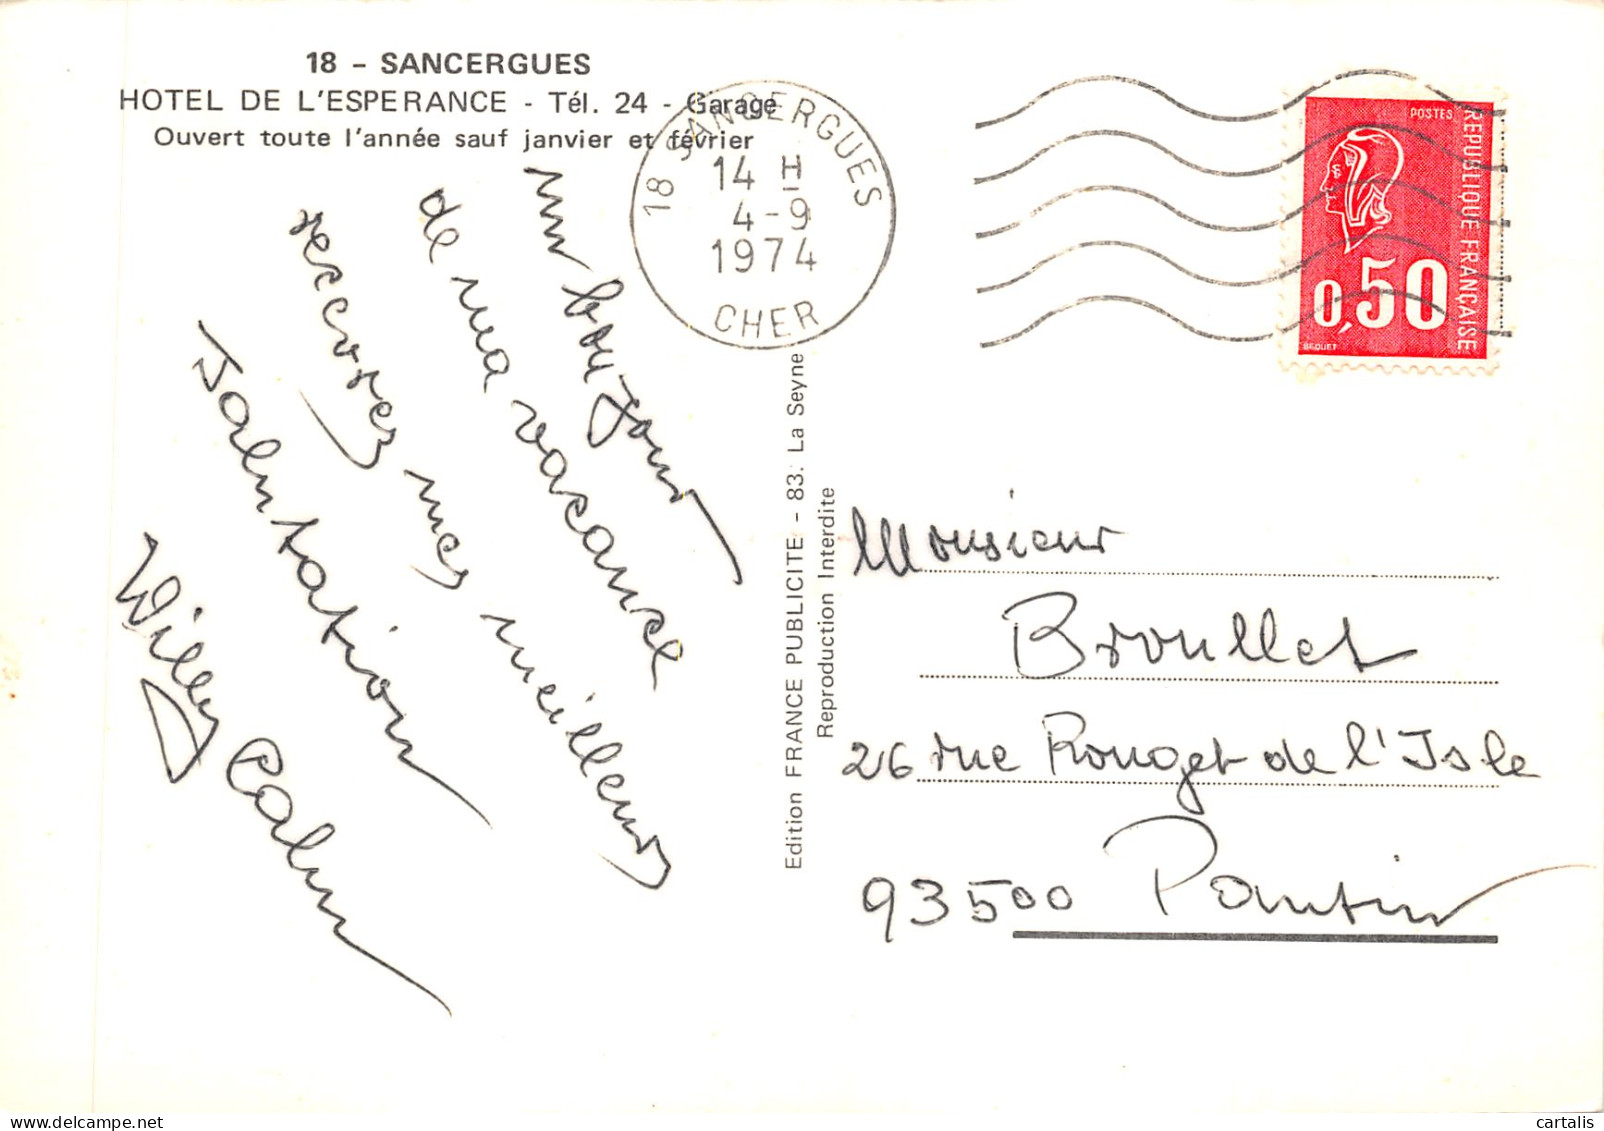 18 - SANCERGUES
HOTEL DE L'ESPERANCE - Tél. 24 - Garage
Ouvert toute l'année sauf janvier et février
un bonjour
de ma vacance
recevez mes meilleurs
Salutation
Willy Calm
18 SANCERGUES
14 H
4-9
1974
CHER
POSTES
REPUBLIQUE FRANÇAISE
0,50
BEQUET
Edition FRANCE PUBLICITE - 83. La Seyne
Reproduction Interdite
Monsieur
Broullet
26 rue Rouget de l'Isle
93500 Pantin
cartalis
delcampe.net